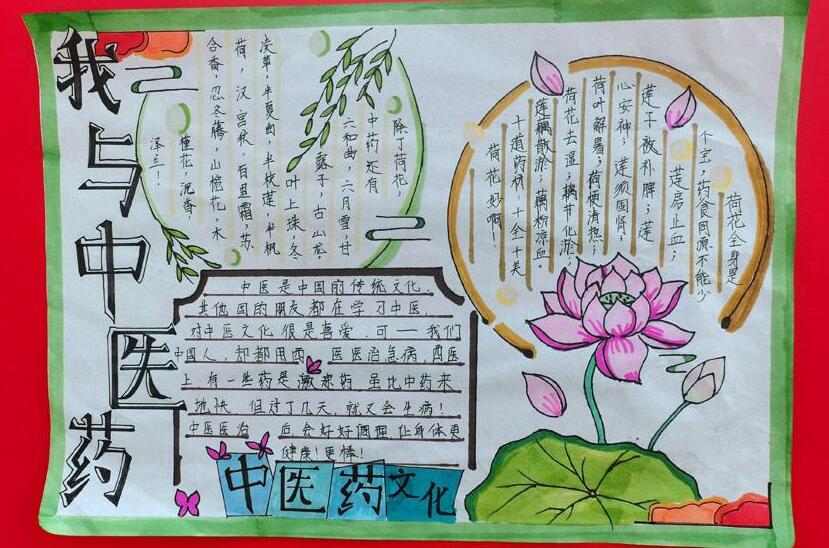 我与中医药
除了荷花，
中药还有
六和曲，六月雪，甘
露子，古山龙
叶上珠，冬
凌草，半夏曲，半枝莲，半枫
荷，汉宫秋，百里霜，苏
合香，忍冬藤，山栀花，木
槿花，沉香，
泽兰！
荷花全身是
个宝，药食同源不能少
莲房止血；
莲子敛补脾；莲
心安神；莲须固肾；
荷叶解暑；荷梗清热；
荷花去湿；藕节化淤；
莲藕散淤；藕粉凉血。
十道药材，十全十美
荷花妙啊！
中医是中国的传统文化，
其他国的朋友都在学习中医，
对中医文化很是喜爱，可一我们
中国人，却都用西 医医治急病，西医
上有一些药是激素药 虽比中药来
地快 但过了几天，就又会生病！
中医医治 后会好好调理 让身体更
健康！更棒！
中医药文化